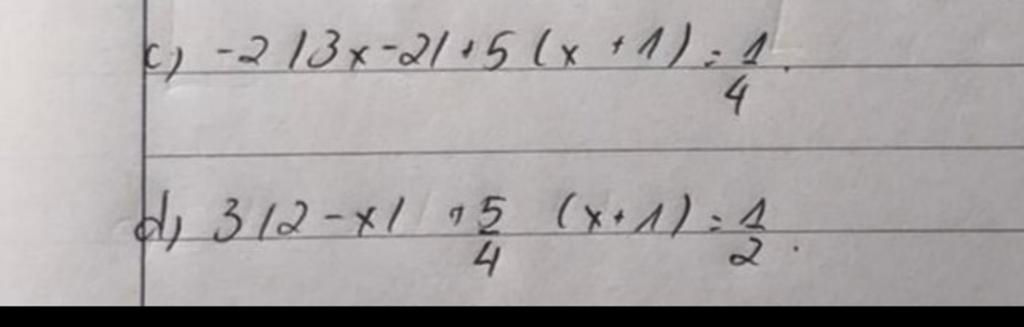 c) -2 |3x-2| + 5 (x + 1) = 1/4.
d) 3 |2-x| + 5/4 (x+1) = 1/2.